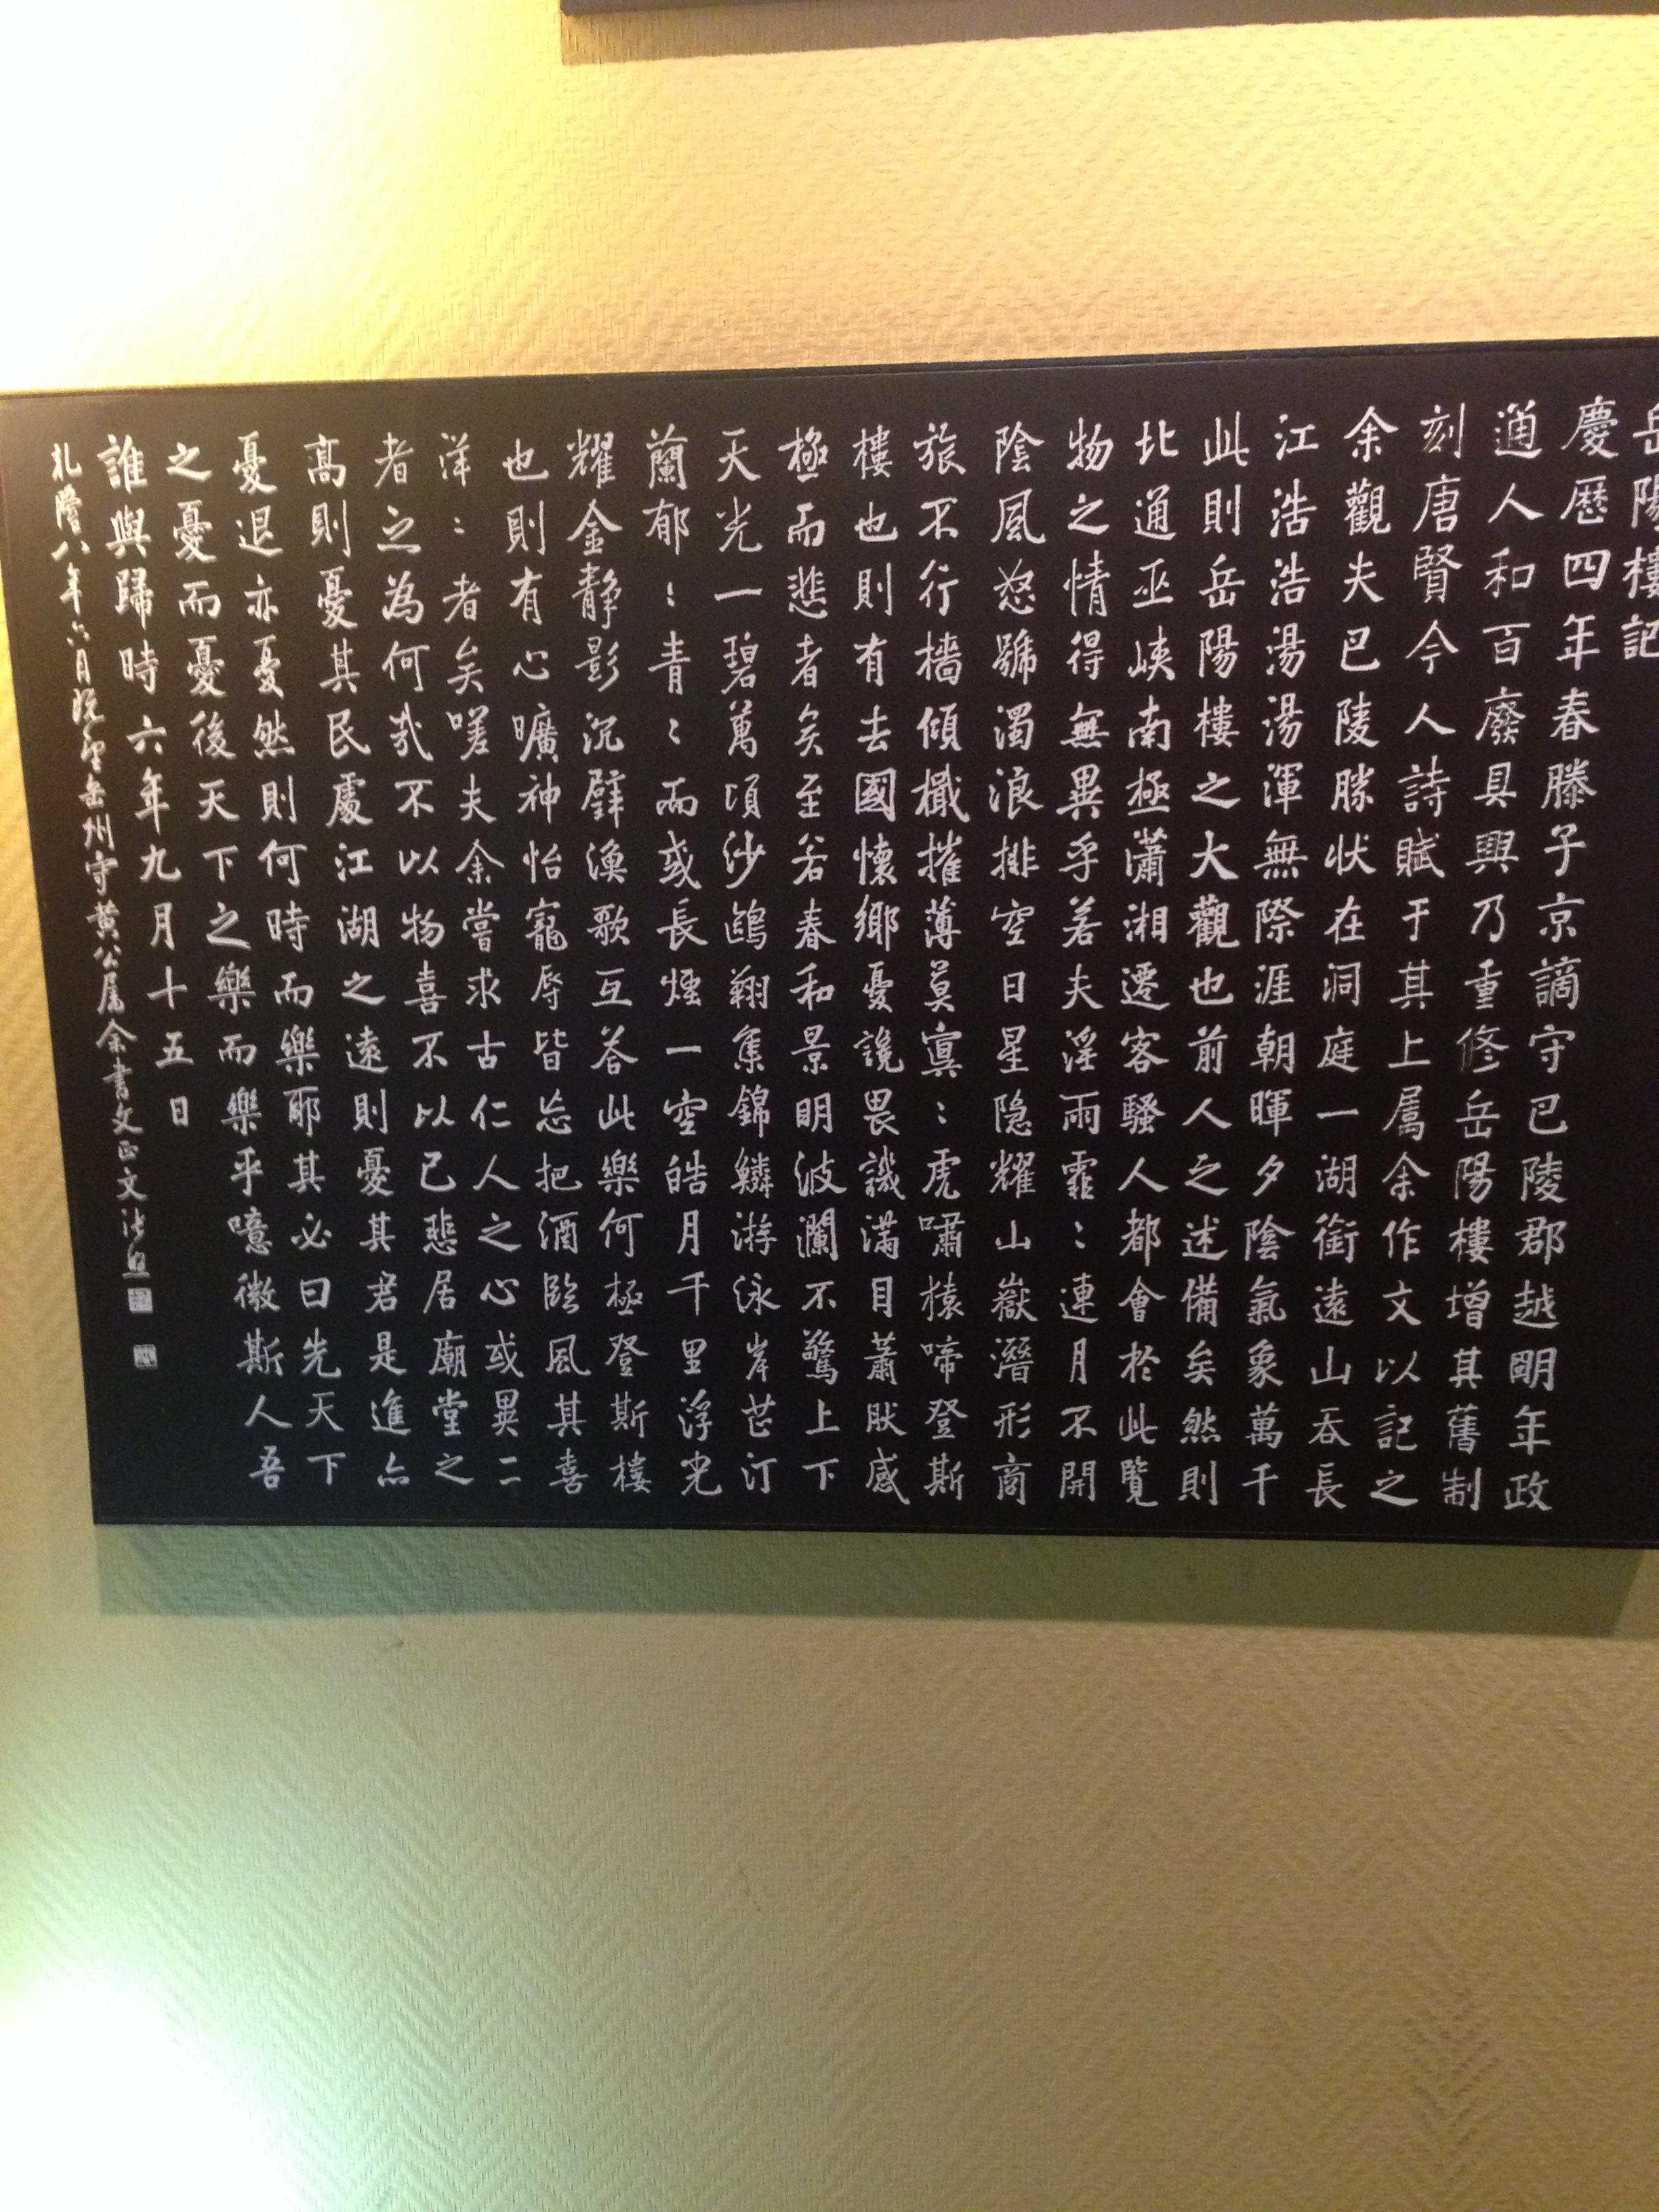 岳陽樓記
慶歷四年春滕子京謫守巴陵郡越明年政
通人和百廢具興乃重修岳陽樓增其舊制
刻唐賢今人詩賦于其上屬余作文以記之
余觀夫巴陵勝狀在洞庭一湖銜遠山吞長
江浩浩湯湯渾無際涯朝暉夕陰氣象萬千
此則岳陽樓之大觀也前人之述備矣然則
北通巫峽南極瀟湘遷客騷人都會於此覽
物之情得無異乎若夫淫雨霏〻連月不開
陰風怒號濁浪排空日星隱耀山嶽潛形商
旅不行檣傾檝摧薄莫冥〻虎嘯猿啼登斯
樓也則有去國懷鄉憂讒畏譏滿目蕭肰感
極而悲者矣至若春和景明波瀾不驚上下
天光一碧萬頃沙鷗翔集錦鱗游泳岸芷汀
蘭郁〻青〻而或長煙一空皓月千里浮光
耀金靜影沉璧漁歌互荅此樂何極登斯樓
也則有心曠神怡寵辱皆忘把酒臨風其喜
洋〻者矣嗟夫余嘗求古仁人之心或異二
者之為何哉不以物喜不以己悲居廟堂之
高則憂其民處江湖之遠則憂其君是進亦
憂退亦憂然則何時而樂耶其必曰先天下
之憂而憂後天下之樂而樂乎噫微斯人吾
誰與歸時六年九月十五日
乾隆八年六月岳州守黃公屬余書文正文張照